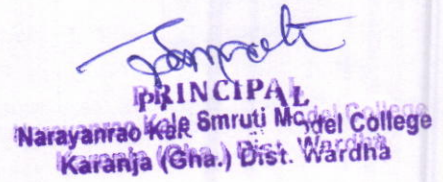 PRINCIPAL
Narayanrao Kale Smruti Model College
Karanja (Gha.) Dist. Wardha